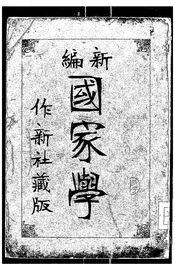 新編
國家學
作新社藏版